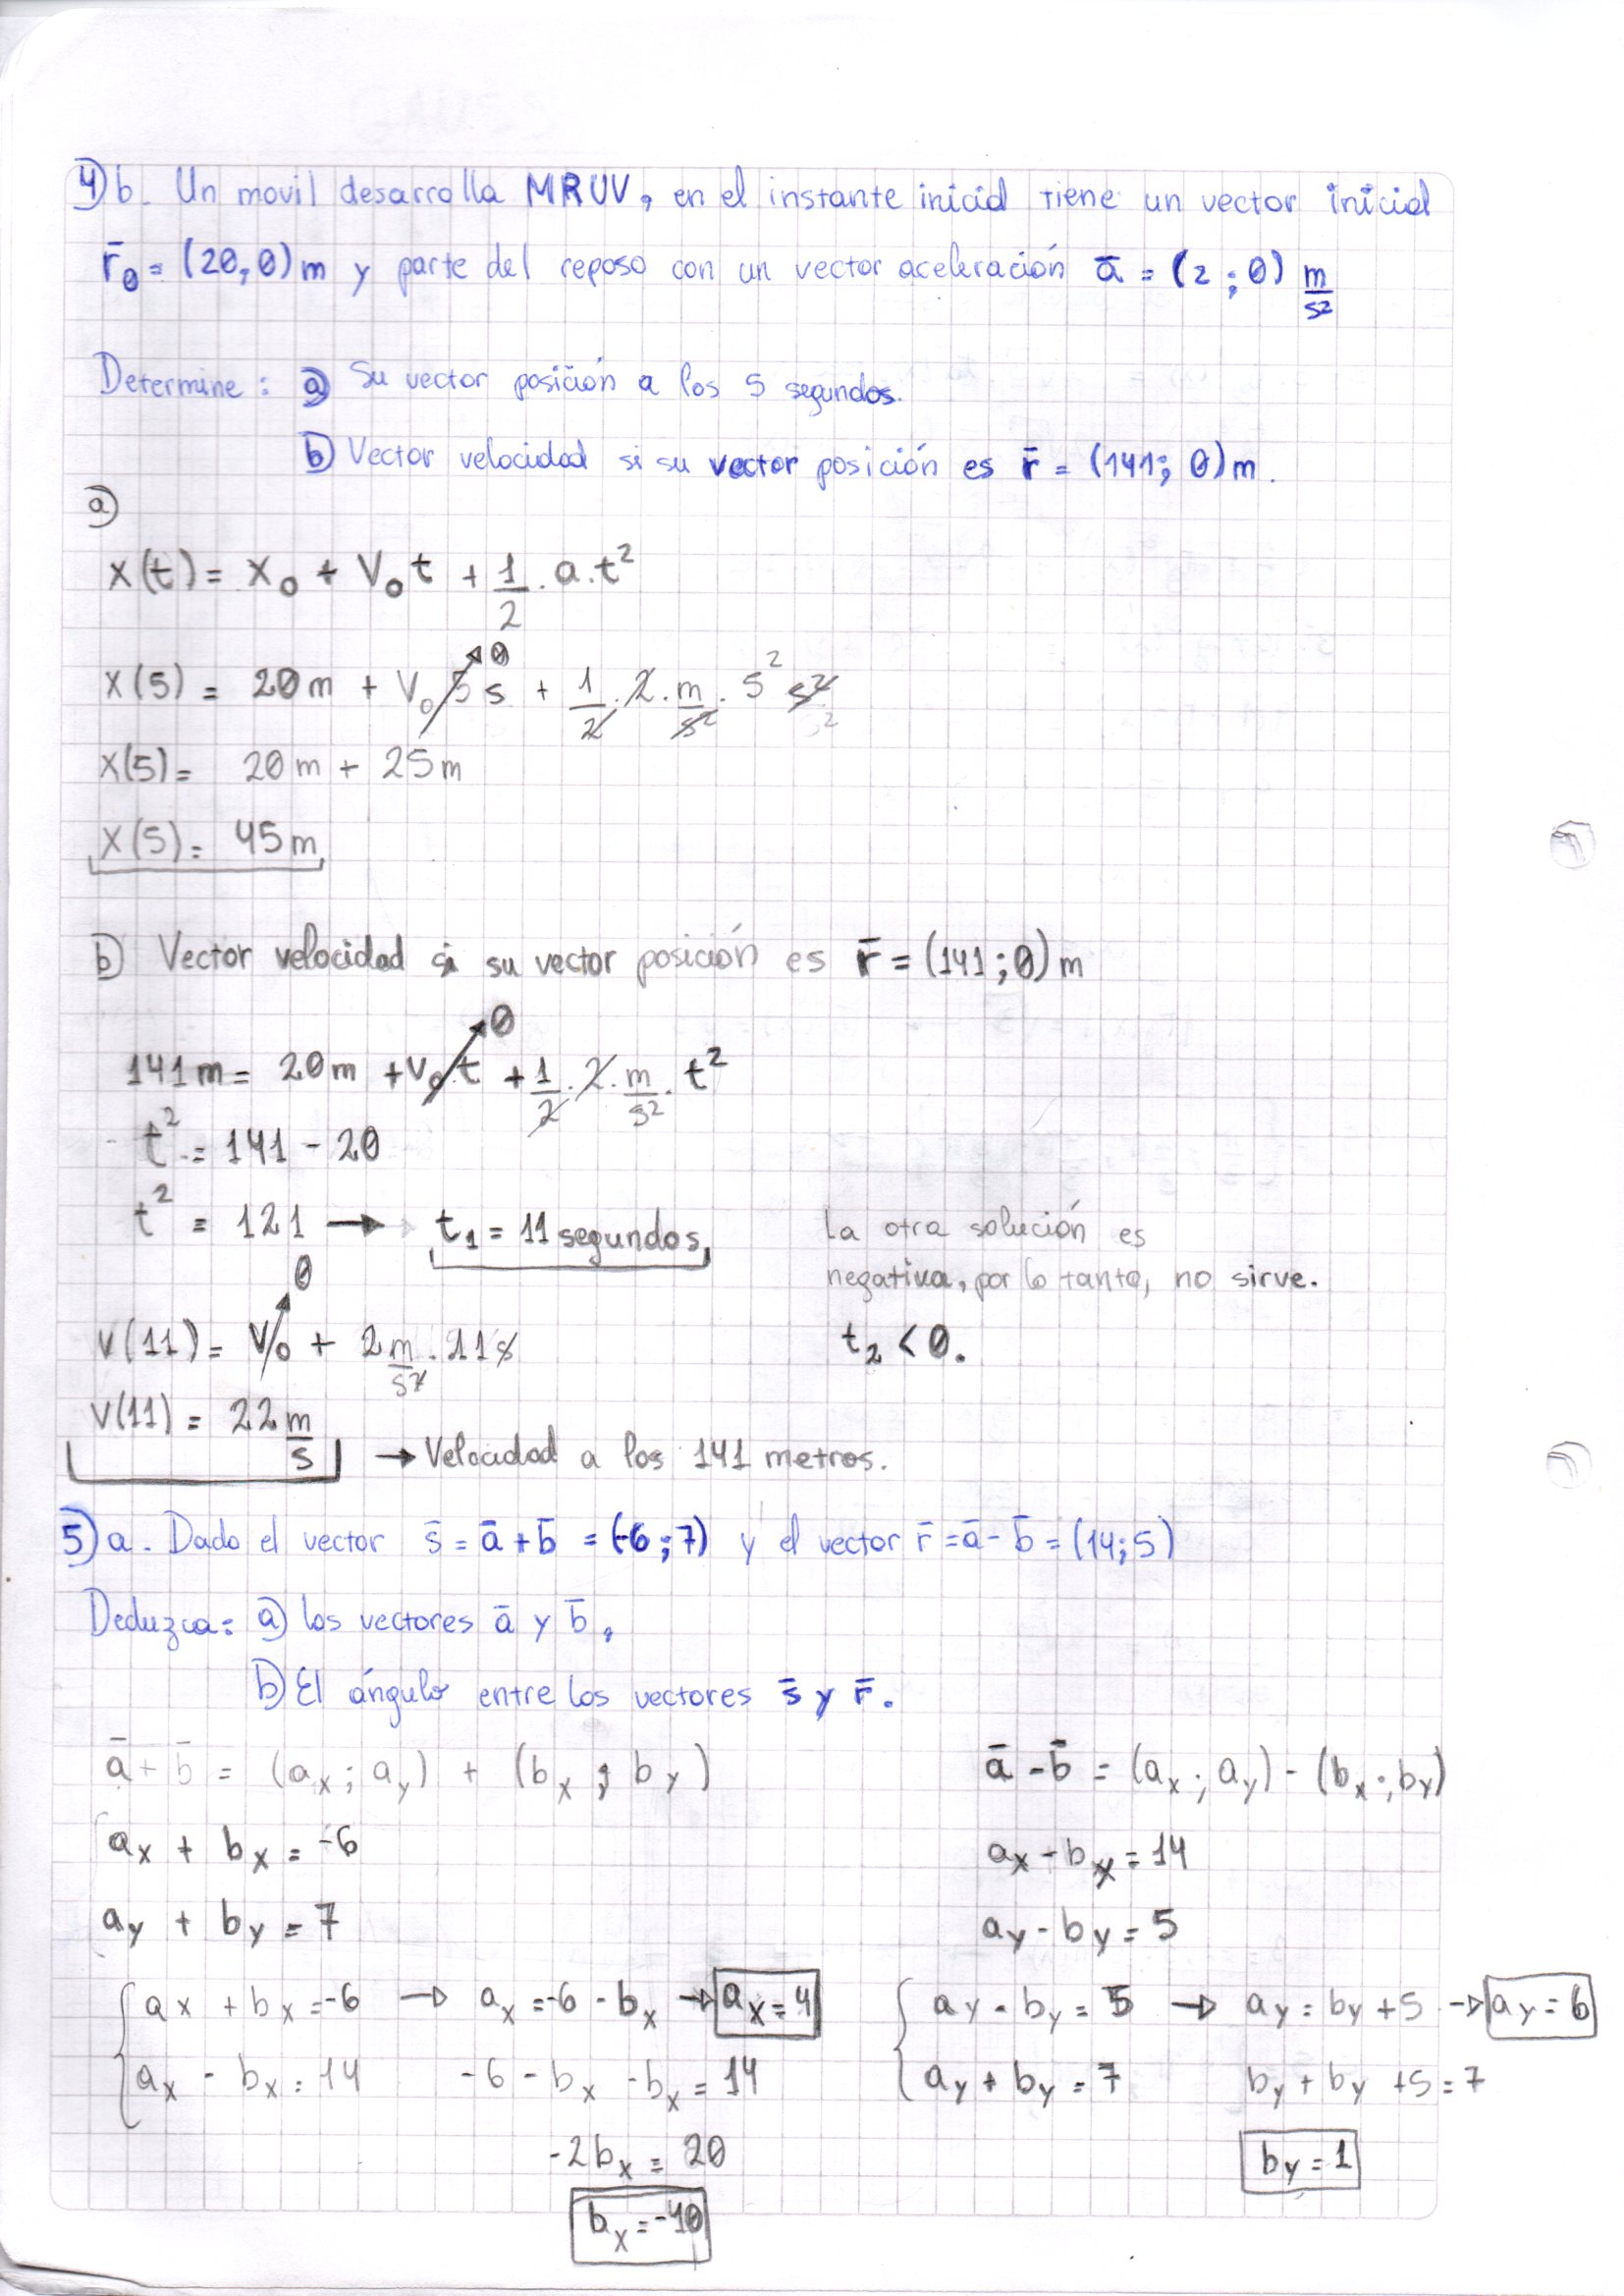 4) b. Un movil desarrolla MRUV, en el instante inicial tiene un vector inicial
r̄₀ = (20, 0) m y parte del reposo con un vector aceleración ā = (2 ; 0) m/s²
Determine: a) Su vector posición a los 5 segundos.
b) Vector velocidad si su vector posición es r̄ = (141; 0) m.
a)
x(t) = x₀ + V₀t + 1/2 . a.t²
0
x(5) = 20m + V₀ 5 s + 1/2 . 2 . m/s² . 5² s²
x(5) = 20 m + 25m
x(5) = 45 m
b) Vector velocidad si su vector posición es r̄ = (141 ; 0) m
0
141 m = 20m + V₀.t + 1/2 . 2 . m/s² . t²
t² = 141 - 20
t² = 121 → t₁ = 11 segundos, la otra solución es
negativa, por lo tanto, no sirve.
0
v(11) = V₀ + 2 m/s² . 11 s t₂ < 0.
v(11) = 22 m/s → Velocidad a los 141 metros.
5) a. Dado el vector s̄ = ā + b̄ = (-6 ; 7) y el vector r̄ = ā - b̄ = (14; 5)
Deduzca: a) los vectores ā y b̄,
b) El ángulo entre los vectores s̄ y r̄.
ā + b̄ = (ax ; ay) + (bx ; by) ā - b̄ = (ax ; ay) - (bx ; by)
ax + bx = -6 ax - bx = 14
ay + by = 7 ay - by = 5
ax + bx = -6 → ax = -6 - bx → ax = 4 ay - by = 5 → ay = by + 5 → ay = 6
ax - bx = 14 -6 - bx - bx = 14 ay + by = 7 by + by + 5 = 7
-2bx = 20 by = 1
bx = -10